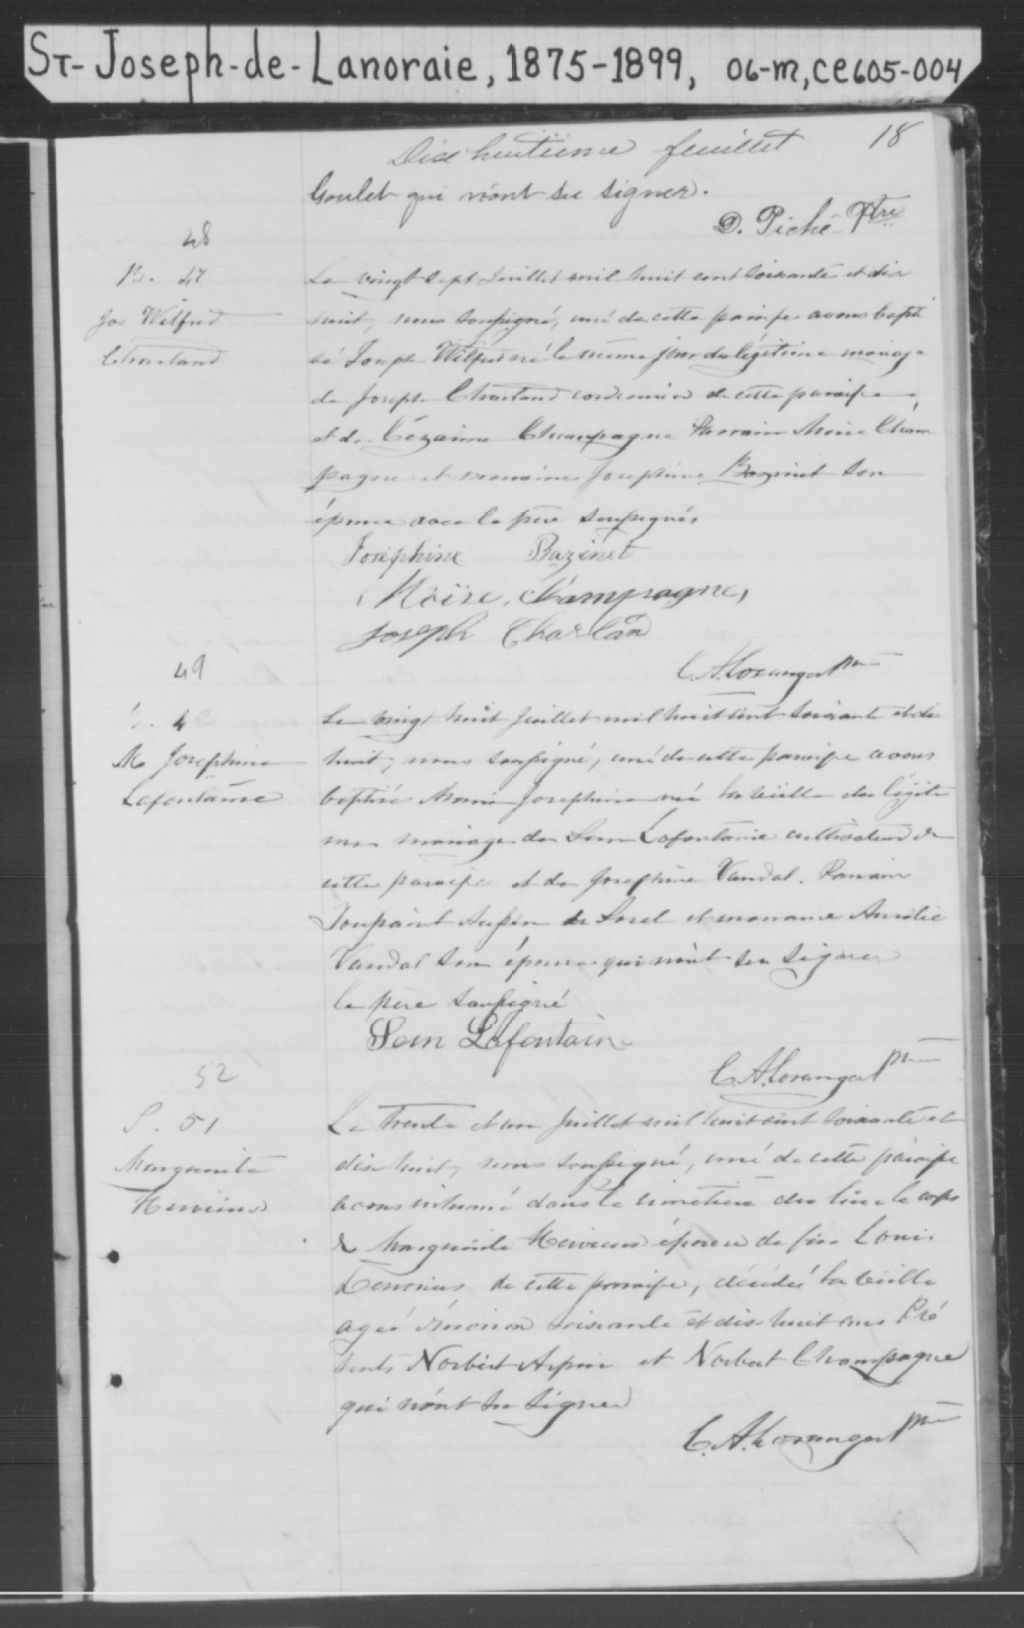 ST-Joseph-de-Lanoraie, 1875-1899, 06-M, CE605-004
Dixhuitième feuillet 18
Goulet qui n'ont su signer.
D. Piché Ptre
48
B. 47
Jos Wilfrid
Chartand
Le vingt sept Juillet mil huit cent soixante et dix
huit, nous soussigné, curé de cette paroisse avons bapti
sé Joseph Wilfrid né le même jour du légitime mariage
de Joseph Chartand cordonnier de cette paroisse
et de Cézarine Champagne Parrain Moïse Cham
pagne et marraine Josephine Bazinet son
épouse avec le père soussignés
Josephine Bazinet
Moïse Champagne,
Joseph Charlan
C.A. Loranger Ptre
49
4
M Josephine
Lafontaine
Le vingt huit Juillet mil huit cent soixante et dix
huit, nous soussigné, curé de cette paroisse avons
baptisé Marie Josephine née la veille du légiti
me mariage de Lafontaine cultivateur de
cette paroisse et de Josephine Vandal. Parrain
Toussaint de Sorel et marraine Aurélie
Vandal son épouse qui n'ont su signer
le père soussigné
Lafontain
C.A. Loranger Ptre
52
S. 51
Marguerite
Hervieux
Le Trente et un Juillet mil huit cent soixante et
dix huit, nous soussigné, curé de cette paroisse
avons inhumé dans le cimetière du lieu le corps
de Marguerite Hervieux épouse de feu Louis
de cette paroisse, décédée la veille
agée d'environ soixante et dix-huit ans Pré
sents Norbert Arpin et Norbert Champagne
qui n'ont su signer
C.A. Loranger Ptre